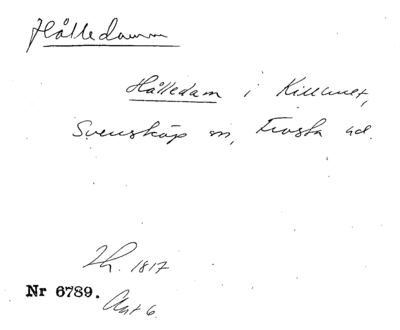 Hålledamm
Hålledam i Killhult,
Svensköp sn, Frosta hd.
Lh. 1817
Nr 6789.
Akt 6